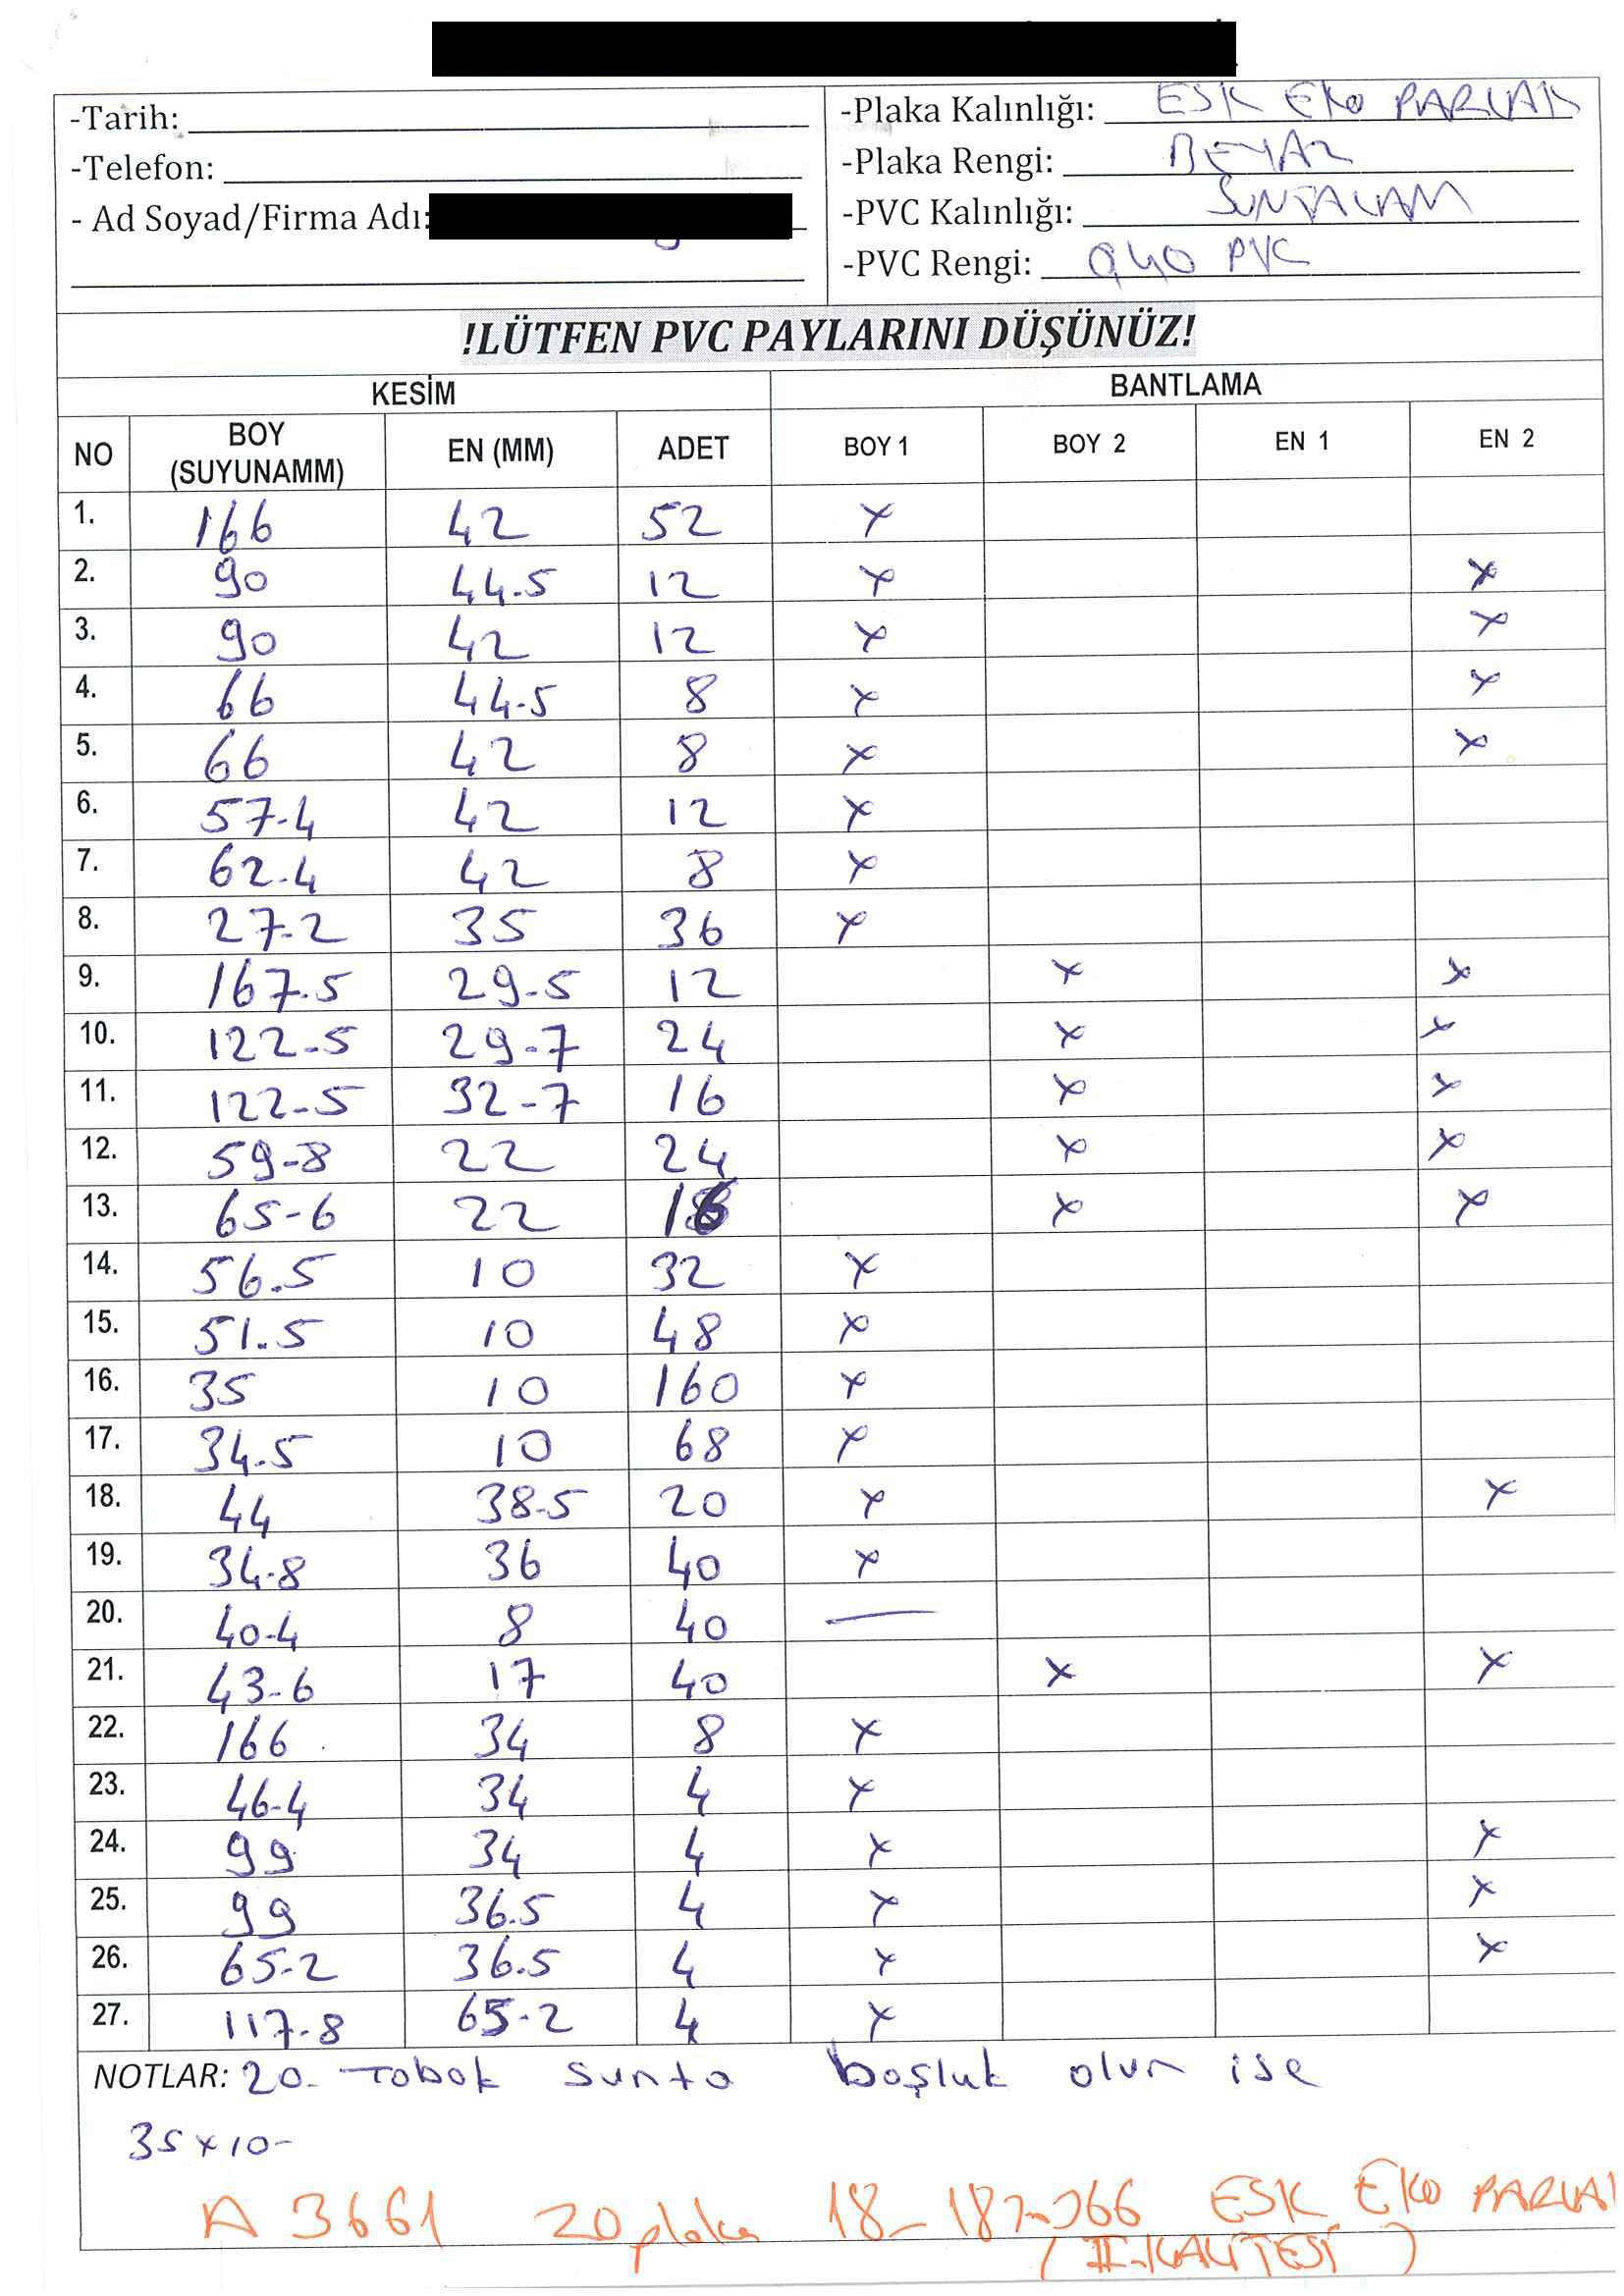 -Tarih:
-Telefon:
- Ad Soyad/Firma Adı:
-Plaka Kalınlığı: ESK EKO PARLAK
-Plaka Rengi: BEYAZ
-PVC Kalınlığı: SUNTALAM
-PVC Rengi: 0,40 PVC
!LÜTFEN PVC PAYLARINI DÜŞÜNÜZ!
KESİM BANTLAMA
NO BOY (SUYUNAMM) EN (MM) ADET BOY 1 BOY 2 EN 1 EN 2
1. 166 42 52 x
2. 90 44.5 12 x x
3. 90 42 12 x x
4. 66 44.5 8 x x
5. 66 42 8 x x
6. 57-4 42 12 x
7. 62.4 42 8 x
8. 27-2 35 36 x
9. 167.5 29-5 12 x x
10. 122-5 29-7 24 x x
11. 122-5 32-7 16 x x
12. 59-8 22 24 x x
13. 65-6 22 16 x x
14. 56.5 10 32 x
15. 51.5 10 48 x
16. 35 10 160 x
17. 34.5 10 68 x
18. 44 38-5 20 x x
19. 34-8 36 40 x
20. 40-4 8 40 —
21. 43-6 17 40 x x
22. 166 34 8 x
23. 46-4 34 4 x
24. 99 34 4 x x
25. 99 36.5 4 x x
26. 65-2 36.5 4 x x
27. 117-8 65-2 4 x
NOTLAR: 20. Tobok sunta boşluk olur ise
35x10-
A 3661 20 plaka 18-183-366 ESK EKO PARLA
(II.KALİTESİ)